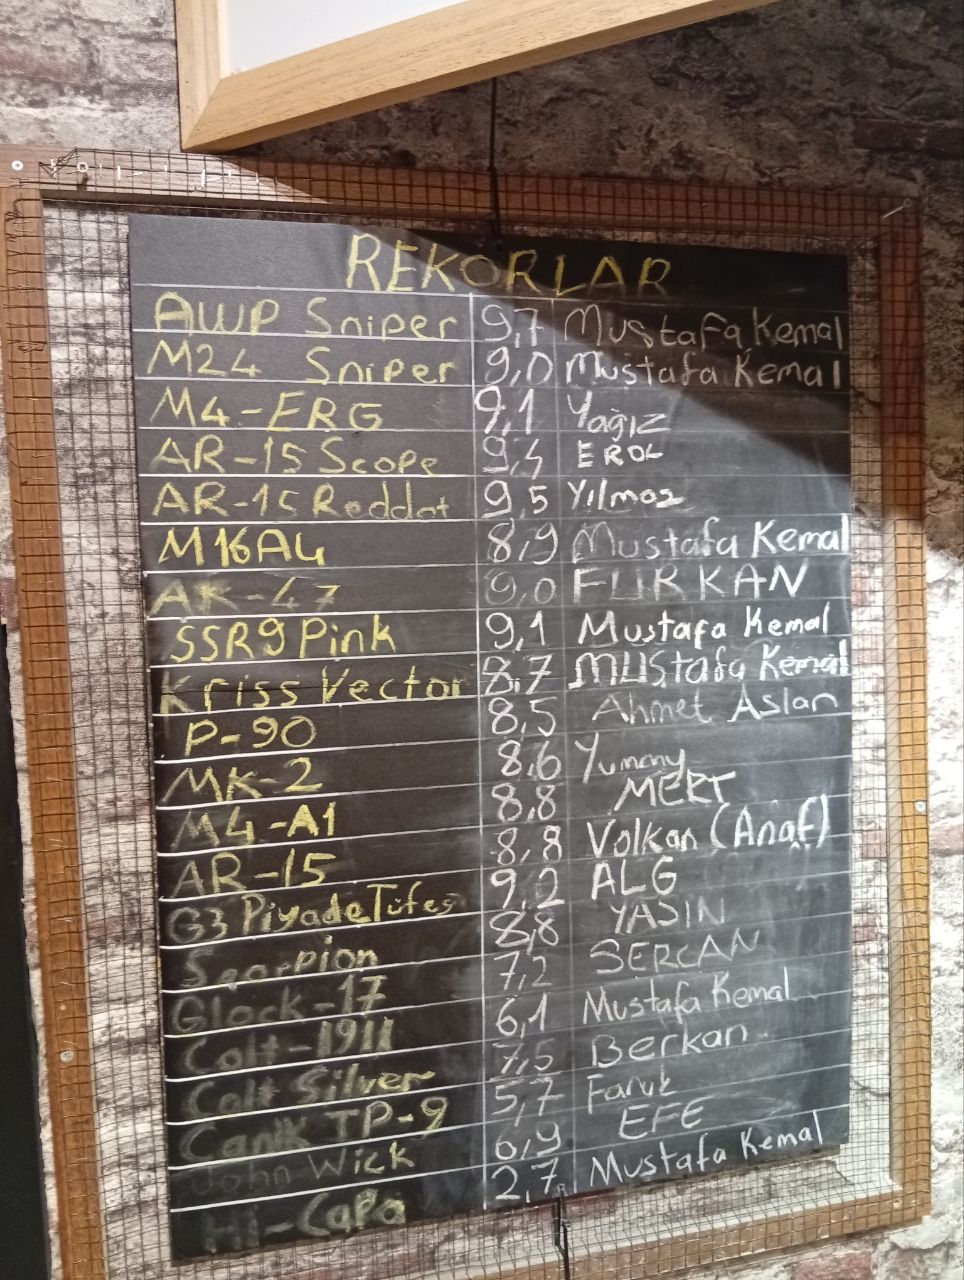 REKORLAR
AWP Sniper 9,7 Mustafa Kemal
M24 Sniper 9,0 Mustafa Kemal
M4-ERG 9,1 Yağız
AR-15 Scope 9,4 EROL
AR-15 Reddot 9,5 Yılmaz
M16A4 8,9 Mustafa Kemal
AK-47 9,0 FURKAN
SSR9 Pink 9,1 Mustafa Kemal
Kriss Vector 8,7 Mustafa Kemal
P-90 8,5 Ahmet Aslan
MK-2 8,6 Yummy
M4-A1 8,8 MERT
AR-15 8,8 Volkan (Anaf)
G3 Piyade Tüfeği 9,2 ALG
Scorpion 8,8 YASIN
Glock-17 7,2 SERCAN
Colt-1911 6,1 Mustafa Kemal
Colt Silver 7,5 Berkan
Canik TP-9 5,7 Faruk
John Wick 6,9 EFE
Hi-Capa 2,7 Mustafa Kemal